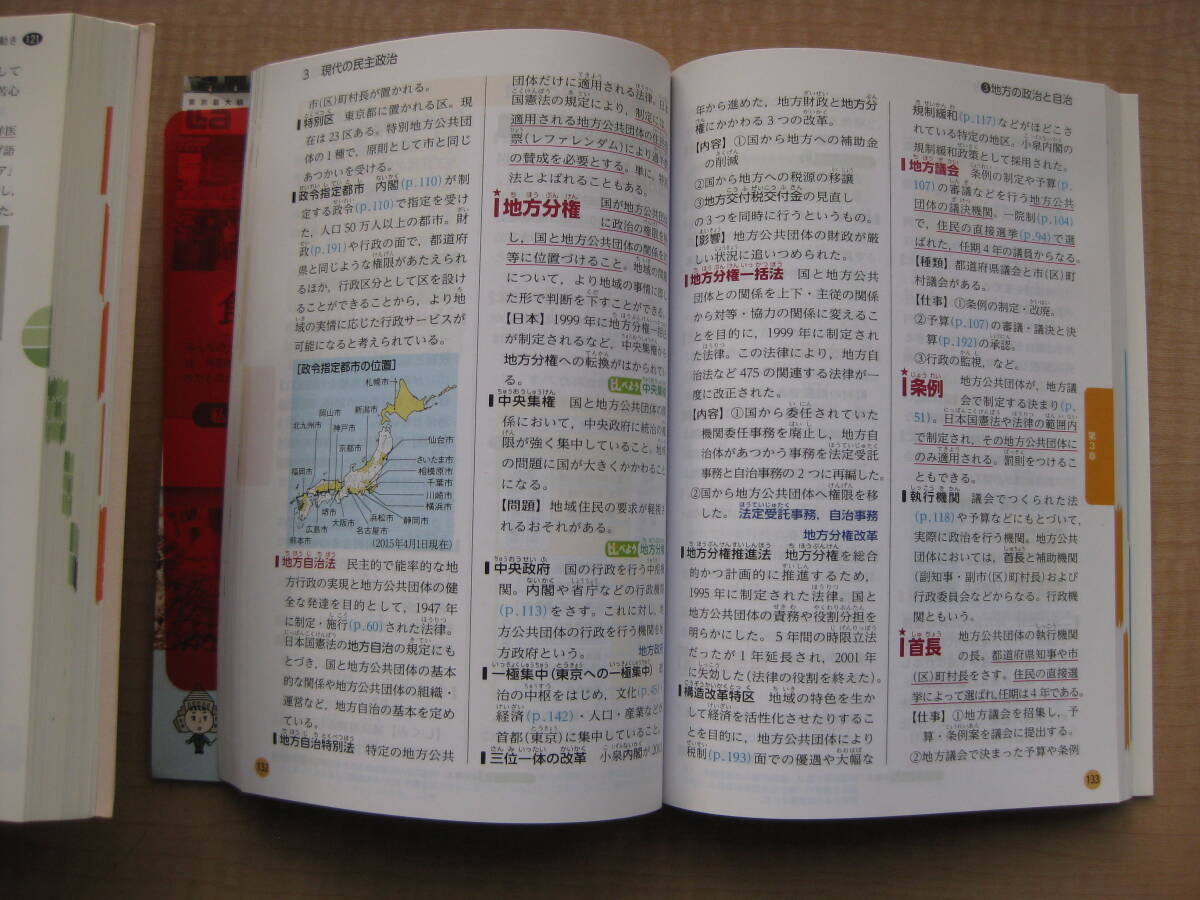 動き 121
3 現代の民主政治
市(区)町村長が置かれる。
特別区 東京都に置かれる区。現
在は 23区ある。特別地方公共団
体の1種で，原則として市と同じ
あつかいを受ける。
政令指定都市 内閣(p.110)が制
定する政令(p.110)で指定を受け
た，人口50万人以上の都市。財
政(p.191)や行政の面で，都道府
県と同じような権限があたえられ
るほか，行政区分として区を設け
ることができることから，より地
域の実情に応じた行政サービスが
可能になると考えられている。
[政令指定都市の位置]
札幌市
新潟市
岡山市
北九州市
神戸市
京都市
仙台市
さいたま市
相模原市
千葉市
川崎市
横浜市
福岡市
堺市
浜松市
静岡市
広島市
大阪市
名古屋市
熊本市
(2015年4月1日現在)
地方自治法 民主的で能率的な地
方行政の実現と地方公共団体の健
全な発達を目的として，1947年
に制定・施行(p.60)された法律。
日本国憲法の地方自治の規定にも
とづき，国と地方公共団体の基本
的な関係や地方公共団体の組織・
運営など，地方自治の基本を定め
ている。
地方自治特別法 特定の地方公共
132
団体だけに適用される法律。日本
国憲法の規定により，制定には
適用される地方公共団体の住民
票(レファレンダム)により過半
の賛成を必要とする。単に，特別
法とよばれることもある。
★地方分権 国が地方公共団体
に政治の権限を
し，国と地方公共団体の関係を対
等に位置づけること。地域の問題
について，より地域の事情に即し
た形で判断を下すことができる。
【日本】1999年に地方分権一括法
が制定されるなど，中央集権から
地方分権への転換がはかられてい
る。
比べよう 中央集権
中央集権 国と地方公共団体の関
係において，中央政府に統治の権
限が強く集中していること。地域
の問題に国が大きくかかわること
になる。
【問題】地域住民の要求が軽視さ
れるおそれがある。
比べよう 地方分権
中央政府 国の行政を行う中枢機
関。内閣や省庁などの行政機関
(p.113)をさす。これに対し，地
方公共団体の行政を行う機関を地
方政府という。 地方政府
一極集中(東京への一極集中) 政
治の中枢をはじめ，文化(p.45)・
経済(p.142)・人口・産業などが
首都(東京)に集中していること。
三位一体の改革 小泉内閣が200
年から進めた，地方財政と地方分
権にかかわる3つの改革。
【内容】①国から地方への補助金
の削減
②国から地方への税源の移譲
③地方交付税交付金の見直し
の3つを同時に行うというもの。
【影響】地方公共団体の財政が厳
しい状況に追いつめられた。
地方分権一括法 国と地方公共
団体との関係を上下・主従の関係
から対等・協力の関係に変えるこ
とを目的に，1999年に制定され
た法律。この法律により，地方自
治法など475の関連する法律が一
度に改正された。
【内容】①国から委任されていた
機関委任事務を廃止し，地方自
治体があつかう事務を法定受託
事務と自治事務の2つに再編した。
②国から地方公共団体へ権限を移
した。 法定受託事務，自治事務
地方分権改革
地方分権推進法 地方分権を総合
的かつ計画的に推進するため，
1995年に制定された法律。国と
地方公共団体の責務や役割分担を
明らかにした。5年間の時限立法
だったが1年延長され，2001年
に失効した(法律の役割を終えた)。
構造改革特区 地域の特色を生か
して経済を活性化させたりするこ
とを目的に，地方公共団体により
税制(p.193)面での優遇や大幅な
❸地方の政治と自治
規制緩和(p.117)などがほどこさ
れている特定の地区。小泉内閣の
規制緩和政策として採用された。
地方議会 条例の制定や予算(p.
107)の審議などを行う地方公共
団体の議決機関。一院制(p.104)
で，住民の直接選挙(p.94)で選
ばれた，任期4年の議員からなる。
【種類】都道府県議会と市(区)町
村議会がある。
【仕事】①条例の制定・改廃。
②予算(p.107)の審議・議決と決
算(p.192)の承認。
③行政の監視，など。
★条例 地方公共団体が，地方議
会で制定する決まり(p.
51)。日本国憲法や法律の範囲内
で制定され，その地方公共団体に
のみ適用される。罰則をつけるこ
ともできる。
執行機関 議会でつくられた法
(p.118)や予算などにもとづいて，
実際に政治を行う機関。地方公共
団体においては，首長と補助機関
(副知事・副市(区)町村長)および
行政委員会などからなる。行政機
関ともいう。
★首長 地方公共団体の執行機関
の長。都道府県知事や市
(区)町村長をさす。住民の直接選
挙によって選ばれ，任期は4年である。
【仕事】①地方議会を招集し，予
算・条例案を議会に提出する。
②地方議会で決まった予算や条例
第3章
133